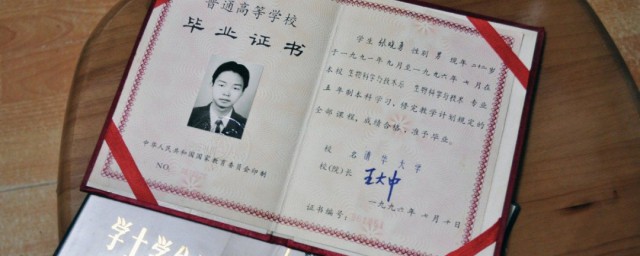 普通高等学校
毕业证书
中华人民共和国国家教育委员会印制
NO.
学生 张晓勇 性别 男 现年 二十二岁
于一九九一年九月至一九九六年七月在
本校 生物科学与技术系 生物科学与技术 专业
五年制本科学习，修完教学计划规定的
全部课程，成绩合格，准予毕业。
校名 清华大学
校(院)长 王大中
一九九六年七月十日
证书编号：
学士学位